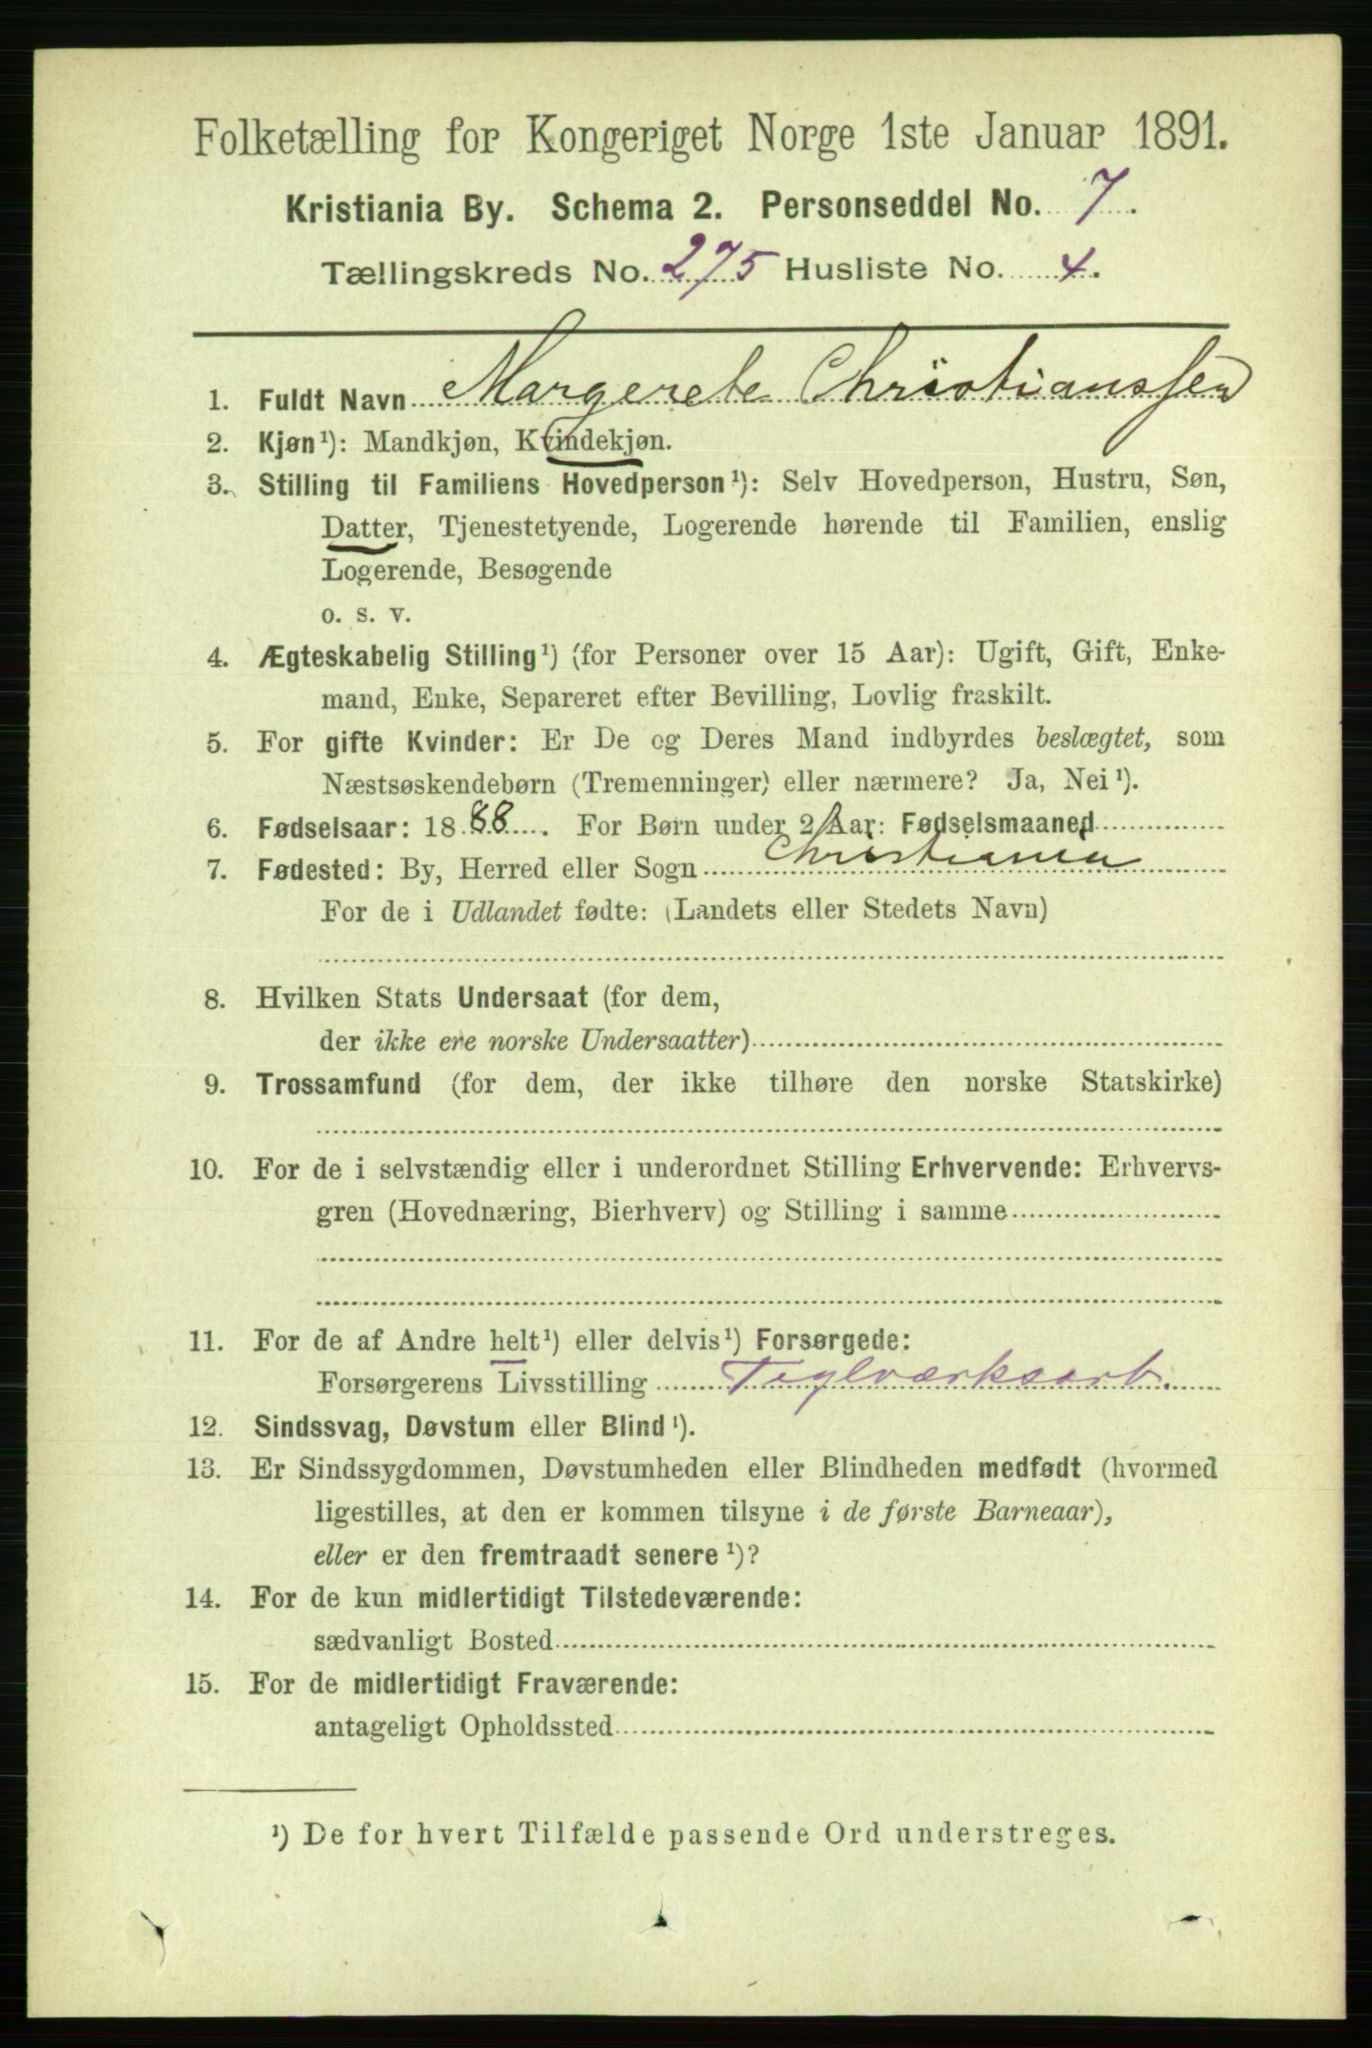 Folketælling for Kongeriget Norge 1ste Januar 1891.
Kristiania By. Schema 2. Personseddel No. 7.
Tællingskreds No. 275 Husliste No. 4.
1. Fuldt Navn Margerete Christianssen
2. Kjøn¹): Mandkjøn, Kvindekjøn.
3. Stilling til Familiens Hovedperson¹): Selv Hovedperson, Hustru, Søn,
Datter, Tjenestetyende, Logerende hørende til Familien, enslig
Logerende, Besøgende
o. s. v.
4. Ægteskabelig Stilling¹) (for Personer over 15 Aar): Ugift, Gift, Enke-
mand, Enke, Separeret efter Bevilling, Lovlig fraskilt.
5. For gifte Kvinder: Er De og Deres Mand indbyrdes beslægtet, som
Næstsøskendebørn (Tremenninger) eller nærmere? Ja, Nei¹).
6. Fødselsaar: 1888. For Børn under 2 Aar: Fødselsmaaned
7. Fødested: By, Herred eller Sogn Christiania
For de i Udlandet fødte: (Landets eller Stedets Navn)
8. Hvilken Stats Undersaat (for dem,
der ikke ere norske Undersaatter)
9. Trossamfund (for dem, der ikke tilhøre den norske Statskirke)
10. For de i selvstændig eller i underordnet Stilling Erhvervende: Erhvervs-
gren (Hovednæring, Bierhverv) og Stilling i samme
11. For de af Andre helt¹) eller delvis¹) Forsørgede:
Forsørgerens Livsstilling Teglværksarb.
12. Sindssvag, Døvstum eller Blind¹).
13. Er Sindssygdommen, Døvstumheden eller Blindheden medfødt (hvormed
ligestilles, at den er kommen tilsyne i de første Barneaar),
eller er den fremtraadt senere¹)?
14. For de kun midlertidigt Tilstedeværende:
sædvanligt Bosted
15. For de midlertidigt Fraværende:
antageligt Opholdssted
¹) De for hvert Tilfælde passende Ord understreges.